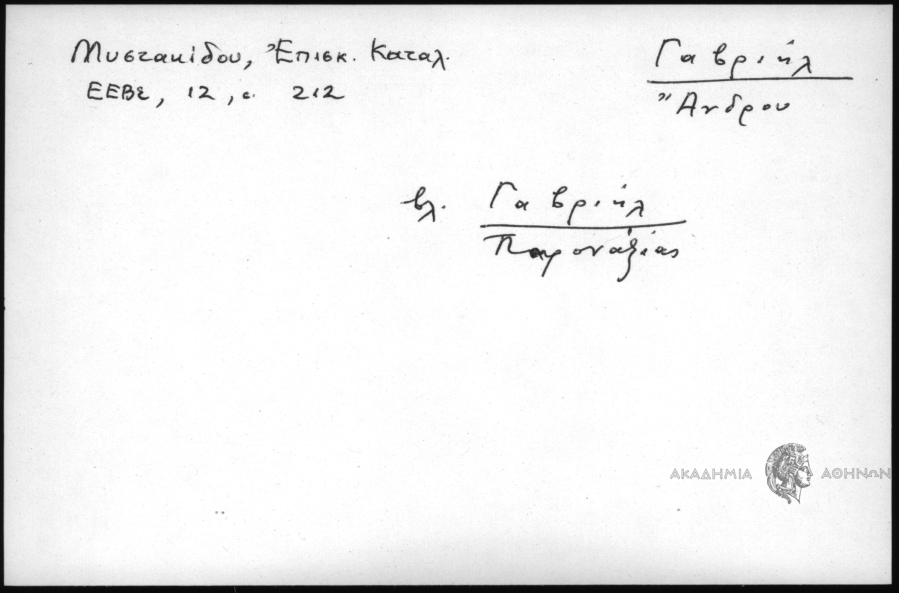 Μυστακίδου, Ἐπισκ. Καταλ.
ΕΕΒΣ, 12, σ. 212
Γαβριήλ
Ἄνδρου
βλ. Γαβριήλ
Παροναξίας
ΑΚΑΔΗΜΙΑ ΑΘΗΝΩΝ